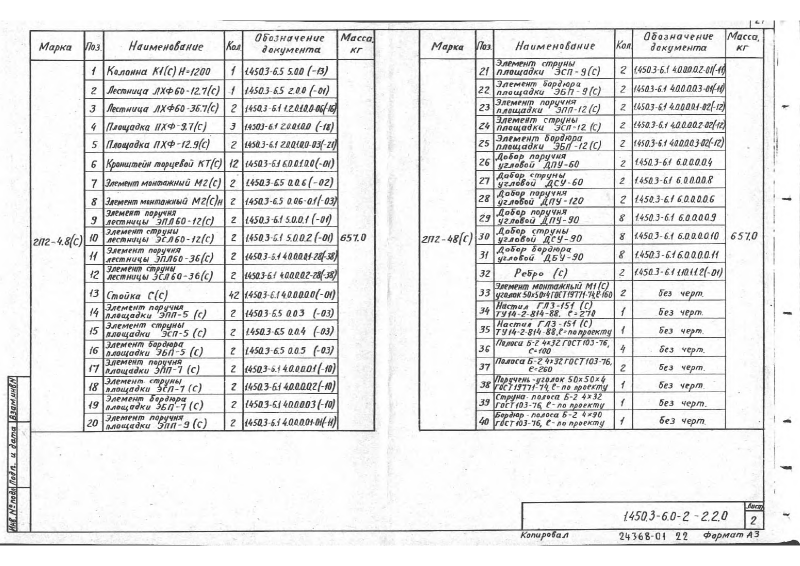 21
Марка Поз. Наименование Кол. Обозначение документа Масса, кг
2П2-4.8(С) 657.0
1 Колонна К1(С) Н=1200 1 1.450.3-6.5 5.0.0 (-13)
2 Лестница ЛХФ60-12.7(С) 1 1.450.3-6.5 2.0.0 (-01)
3 Лестница ЛХФ60-36.7(С) 2
4 Площадка ПХФ-9.7(С) 3 1.450.3-6.1 2.0.0.1.0.0 (-18)
5 Площадка ПХФ-12.9(С) 2 1.450.3-6.1 2.0.0.1.0.0-03(-21)
6 Кронштейн торцевой КТ(С) 12 1.450.3-6.1 6.0.0.1.0.0(-01)
7 Элемент монтажный М2(С) 2 1.450.3-6.5 0.0.6 (-02)
8 Элемент монтажный М2(С)н 2 1.450.3-6.5 0.0.6-01(-03)
9 Элемент поручня
лестницы ЭПЛ60-12(С) 2 1.450.3-6.1 5.0.0.1 (-01)
10 Элемент струны
лестницы ЭСЛ60-12(С) 2 1.450.3-6.1 5.0.0.2 (-01)
11 Элемент поручня
лестницы ЭПЛ60-36(С) 2 1.450.3-6.1 4.0.0.0.1-28(-38)
12 Элемент струны
лестницы ЭСЛ60-36(С) 2 1.450.3-6.1 4.0.0.0.2-28(-38)
13 Стойка С(С) 42 1.450.3-6.1 4.0.0.0.0 (-01)
14 Элемент поручня
площадки ЭПП-5 (С) 2 1.450.3-6.5 0.0.3 (-03)
15 Элемент струны
площадки ЭСП-5 (С) 2 1.450.3-6.5 0.0.4 (-03)
16 Элемент бордюра
площадки ЭБП-5 (С) 2 1.450.3-6.5 0.0.5 (-03)
17 Элемент поручня
площадки ЭПП-7 (С) 2 1.450.3-6.1 4.0.0.0.1(-10)
18 Элемент струны
площадки ЭСП-7 (С) 2 1.450.3-6.1 4.0.0.0.2(-10)
19 Элемент бордюра
площадки ЭБП-7 (С) 2 1.450.3-6.1 4.0.0.0.3(-10)
20 Элемент поручня
площадки ЭПП-9 (С) 2 1.450.3-6.1 4.0.0.0.1-01(-11)
Марка Поз. Наименование Кол. Обозначение документа Масса, кг
2П2-48(С) 657.0
21 Элемент струны
площадки ЭСП-9(С) 2 1.450.3-6.1 4.0.0.0.2-01(-11)
22 Элемент бордюра
площадки ЭБП-9(С) 2 1.450.3-6.1 4.0.0.0.3-01(-11)
23 Элемент поручня
площадки ЭПП-12(С) 2 1.450.3-6.1 4.0.0.0.1-02(-12)
24 Элемент струны
площадки ЭСП-12(С) 2 1.450.3-6.1 4.0.0.0.2-02(-12)
25 Элемент бордюра
площадки ЭБП-12(С) 2 1.450.3-6.1 4.0.0.0.3-02(-12)
26 Добор поручня
угловой ДПУ-60 2 1.450.3-6.1 6.0.0.0.4
27 Добор струны
угловой ДСУ-60 2 1.450.3-6.1 6.0.0.0.8
28 Добор поручня
угловой ДПУ-120 2 1.450.3-6.1 6.0.0.0.6
29 Добор поручня
угловой ДПУ-90 8 1.450.3-6.1 6.0.0.0.9
30 Добор струны
угловой ДСУ-90 8 1.450.3-6.1 6.0.0.0.10
31 Добор бордюра
угловой ДБУ-90 8 1.450.3-6.1 6.0.0.0.11
32 Ребро (С) 2 1.450.3-6.1 1.1.0.1.1.2(-01)
33 Элемент монтажный М1(С)
уголок 50х50х4 ГОСТ 19771-74, ℓ=160 2 без черт.
34 Настил ГЛЗ-151 (С)
ТУ14-2-814-88. ℓ=270 1 без черт.
35 Настил ГЛЗ-151 (С)
ТУ14-2-814-88, ℓ-по проекту 1 без черт.
36 Полоса Б-2 4х32 ГОСТ 103-76,
ℓ=100 4 без черт.
37 Полоса Б-2 4х32 ГОСТ 103-76,
ℓ=260 2 без черт.
38 Поручень-уголок 50х50х4
ГОСТ 19771-74, ℓ-по проекту 1 без черт.
39 Струна-полоса Б-2 4х32
ГОСТ 103-76, ℓ-по проекту 1 без черт.
40 Бордюр-полоса Б-2 4х90
ГОСТ 103-76, ℓ-по проекту 1 без черт.
Инв.№ подл. Подп. и дата Взам.инв.№
1.450.3-6.0-2-2.2.0
Лист
2
Копировал 24368-01 22 Формат А3